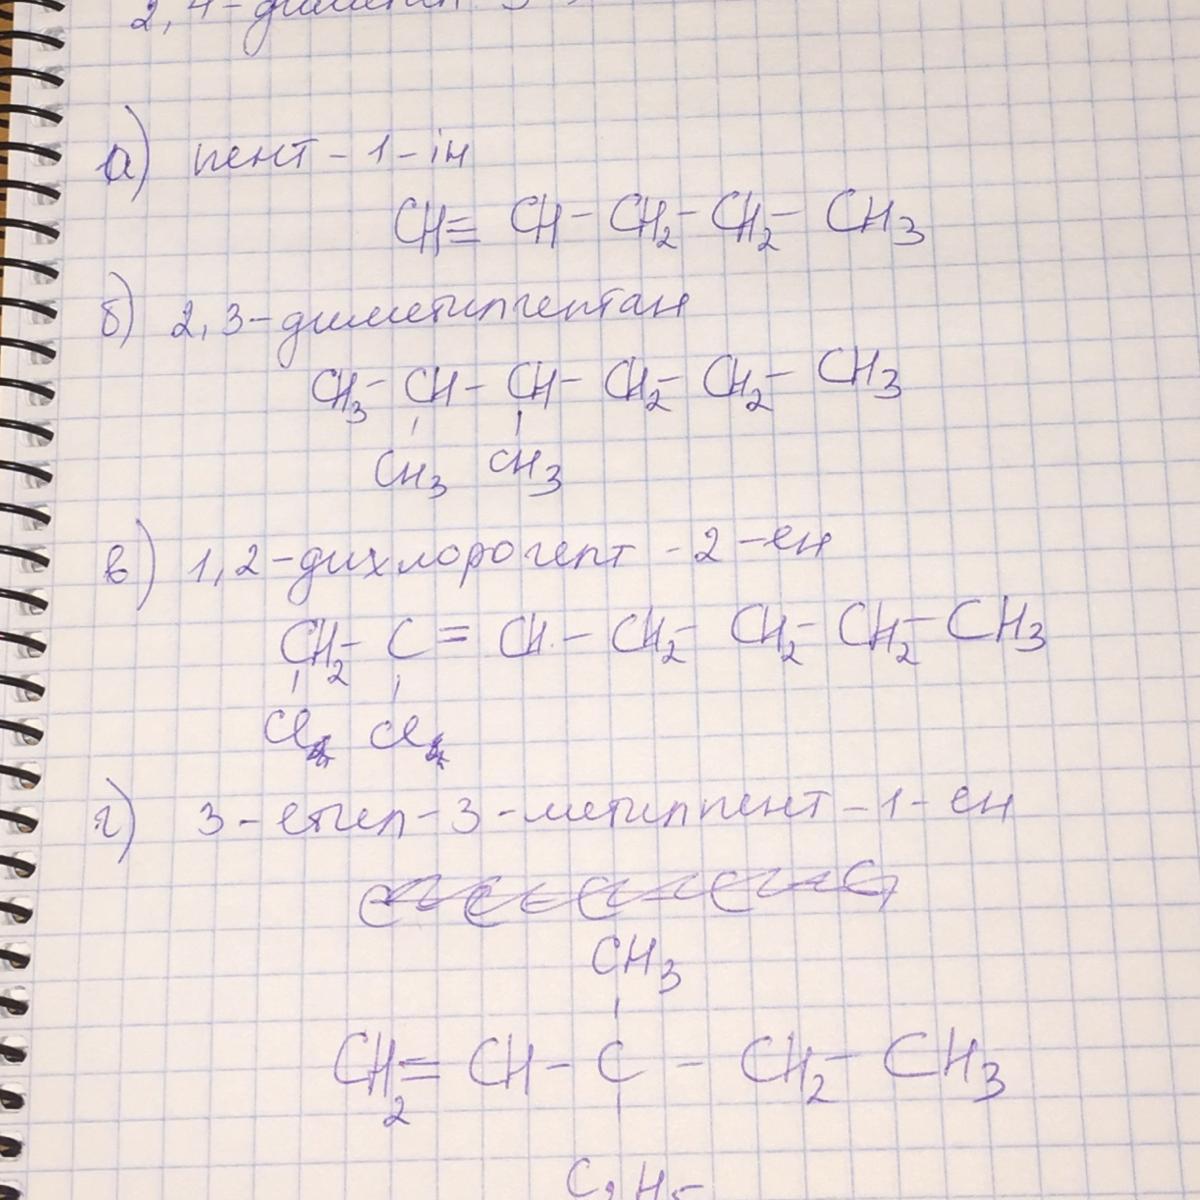 2,4-диметил
а) пент-1-ін
CH≡CH-CH2-CH2-CH3
б) 2,3-диметилгептан
CH3-CH-CH-CH2-CH2-CH3
CH3 CH3
в) 1,2-дихлорогепт-2-ен
CH2-C=CH-CH2-CH2-CH2-CH3
Cl Cl
г) 3-етил-3-метилпент-1-ен
CH3
CH2=CH-C-CH2-CH3
C2H5